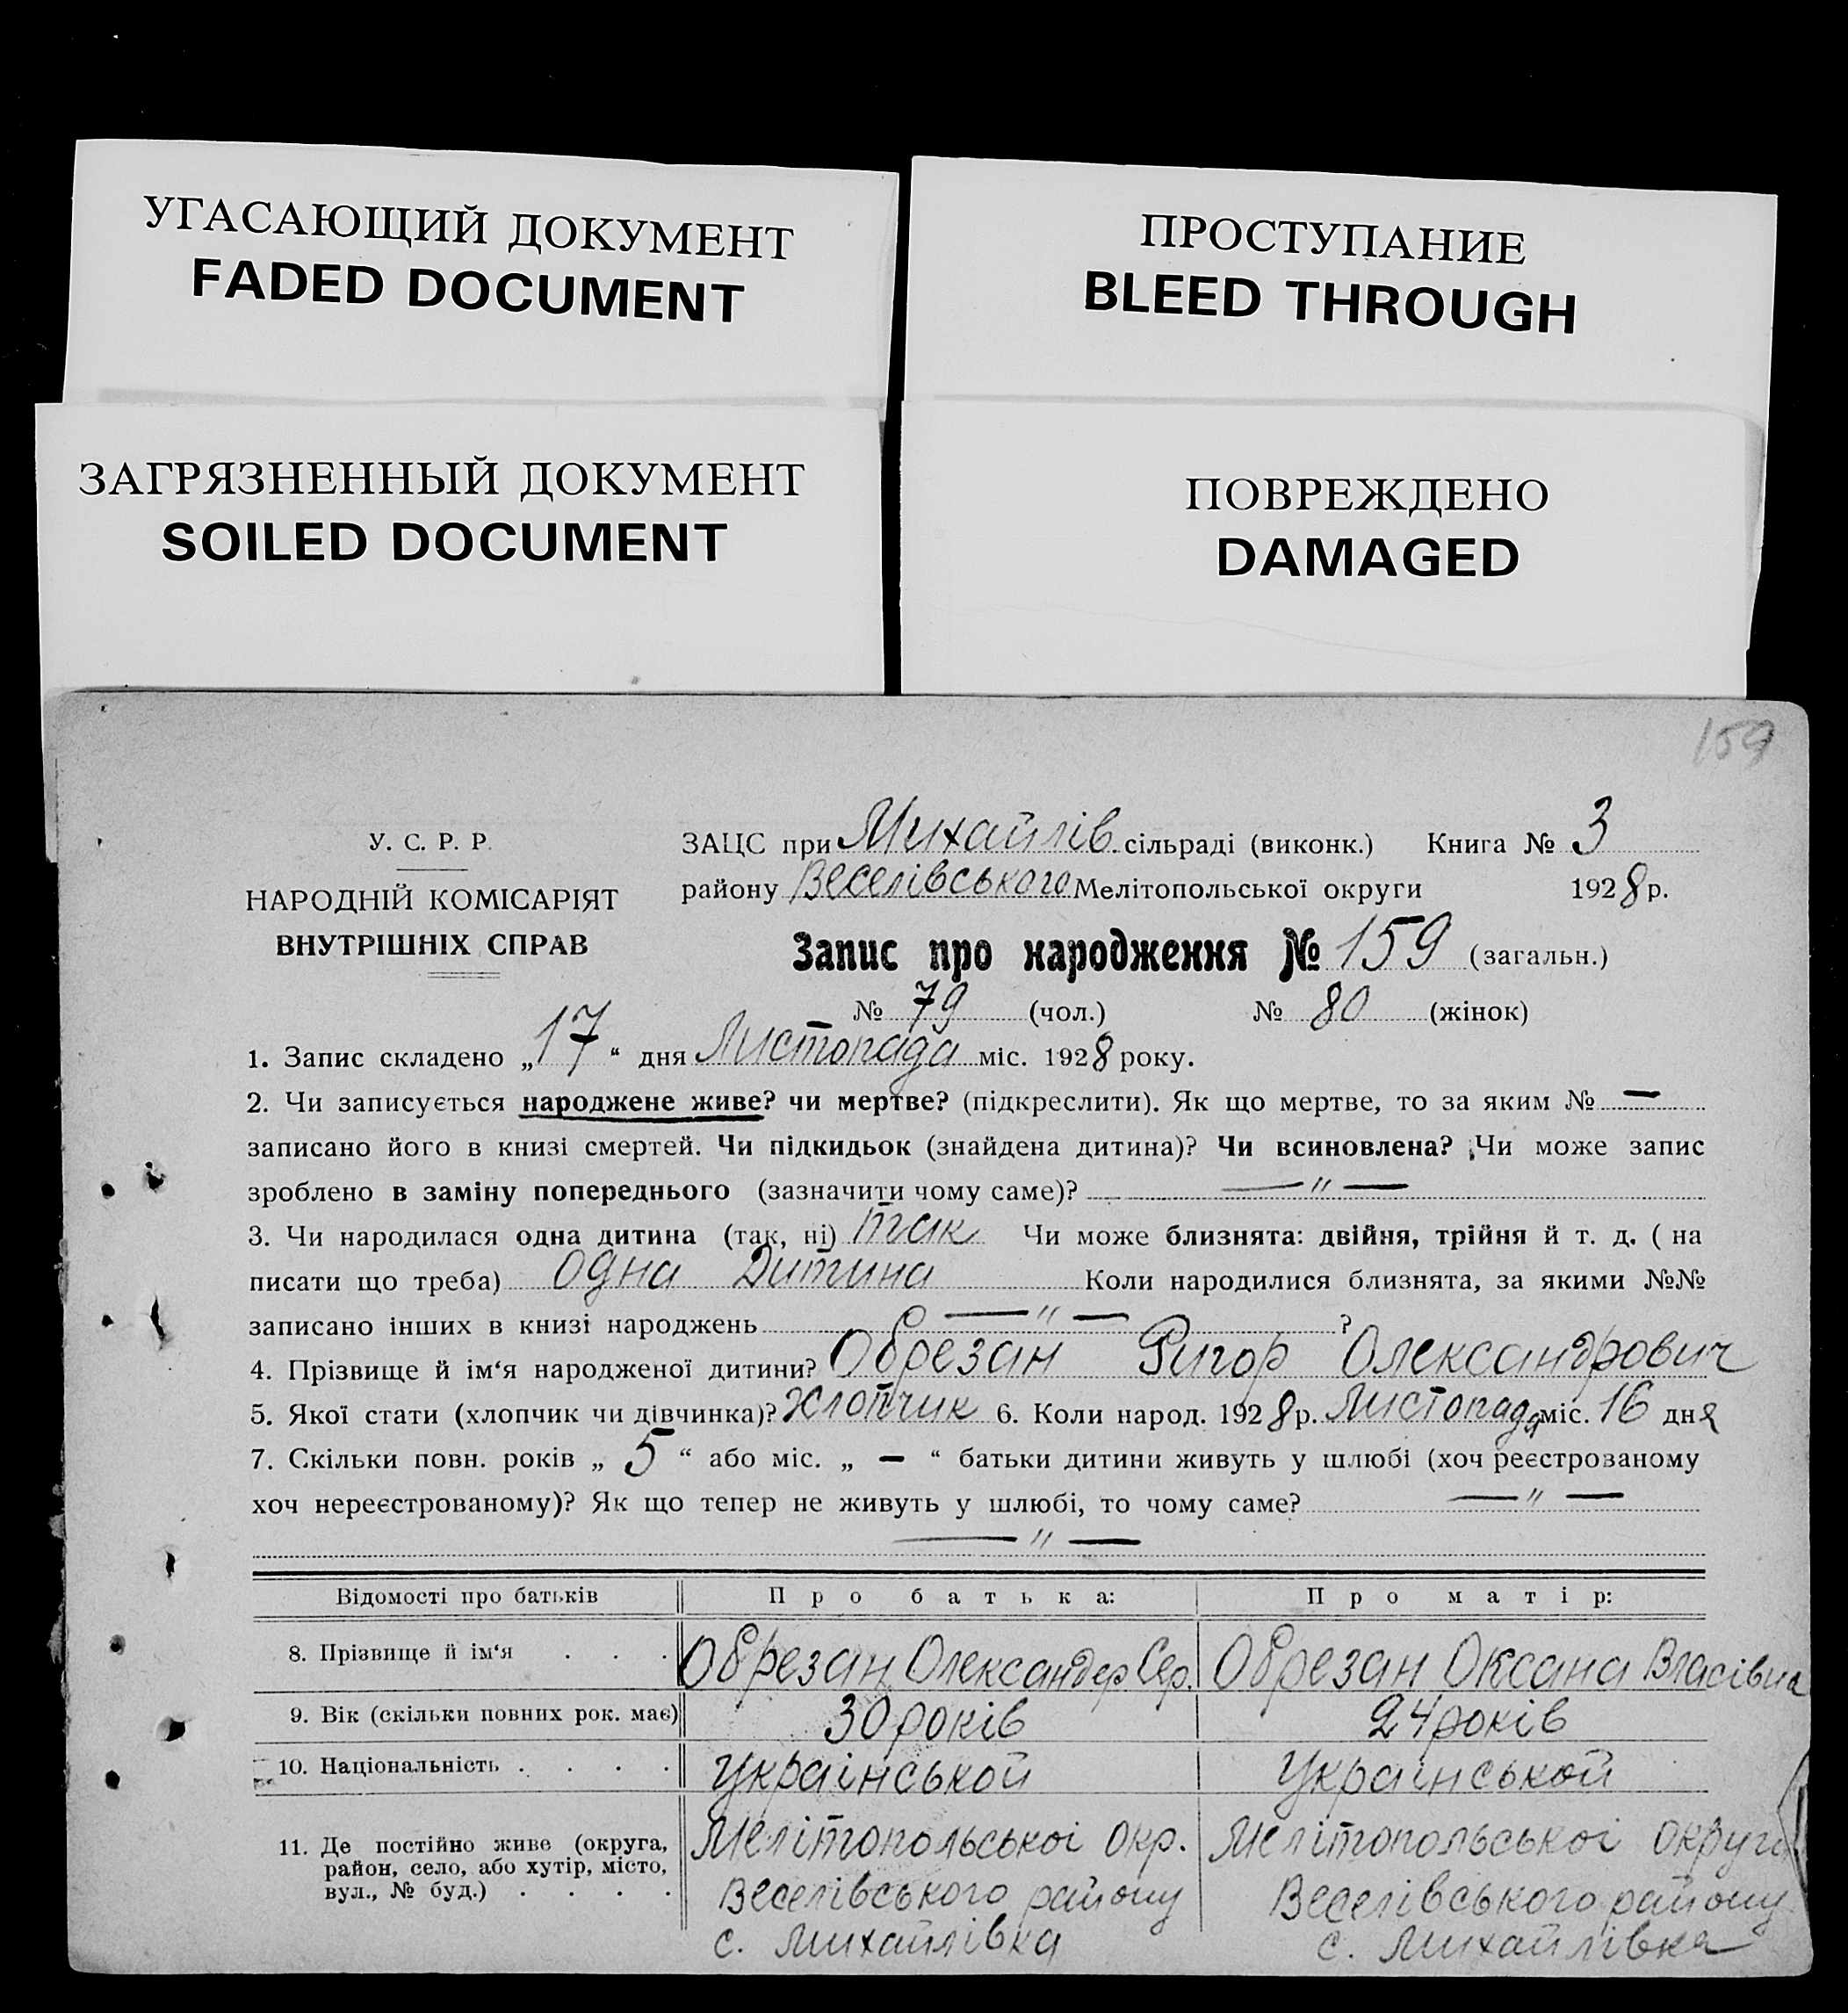 УГАСАЮЩИЙ ДОКУМЕНТ
FADED DOCUMENT
ПРОСТУПАНИЕ
BLEED THROUGH
ЗАГРЯЗНЕННЫЙ ДОКУМЕНТ
SOILED DOCUMENT
ПОВРЕЖДЕНО
DAMAGED
159
У. С. Р. Р.
НАРОДНІЙ КОМІСАРІЯТ
ВНУТРІШНІХ СПРАВ
ЗАЦС при Михайлів. сільраді (виконк.) Книга № 3
району Веселівського Мелітопольської округи 1928 р.
Запис про народження № 159 (загальн.)
№ 79 (чол.) № 80 (жінок)
1. Запис складено „17“ дня Листопада міс. 1928 року.
2. Чи записується народжене живе? чи мертве? (підкреслити). Як що мертве, то за яким № —
записано його в книзі смертей. Чи підкидьок (знайдена дитина)? Чи всиновлена? Чи може запис
зроблено в заміну попереднього (зазначити чому саме)? —〃 —
3. Чи народилася одна дитина (так, ні) так Чи може близнята: двійня, трійня й т. д. ( на
писати що треба) Одна Дитина Коли народилися близнята, за якими №№
записано інших в книзі народжень — 〃 — ?
4. Прізвище й ім'я народженої дитини? Обрезан Григор Олександрович
5. Якої стати (хлопчик чи дівчинка)? Хлопчик 6. Коли народ. 1928 р. Листопада міс. 16 дня
7. Скільки повн. років „ 5 “ або міс. „ — “ батьки дитини живуть у шлюбі (хоч реєстрованому
хоч нереєстрованому)? Як що тепер не живуть у шлюбі, то чому саме? — 〃 —
— 〃 —
Відомості про батьків Про батька: Про матір:
8. Прізвище й ім'я . . . Обрезан Олександер Сер. Обрезан Оксана Власівна
9. Вік (скільки повних рок. має) 30 років 24 років
10. Національність . . . . Українськой Українськой
11. Де постійно живе (округа,
район, село, або хутір, місто,
вул., № буд.) . . . .
Мелітопольської Окр.
Веселівського району
с. Михайлівка
Мелітопольської округи
Веселівського району
с. Михайлівка